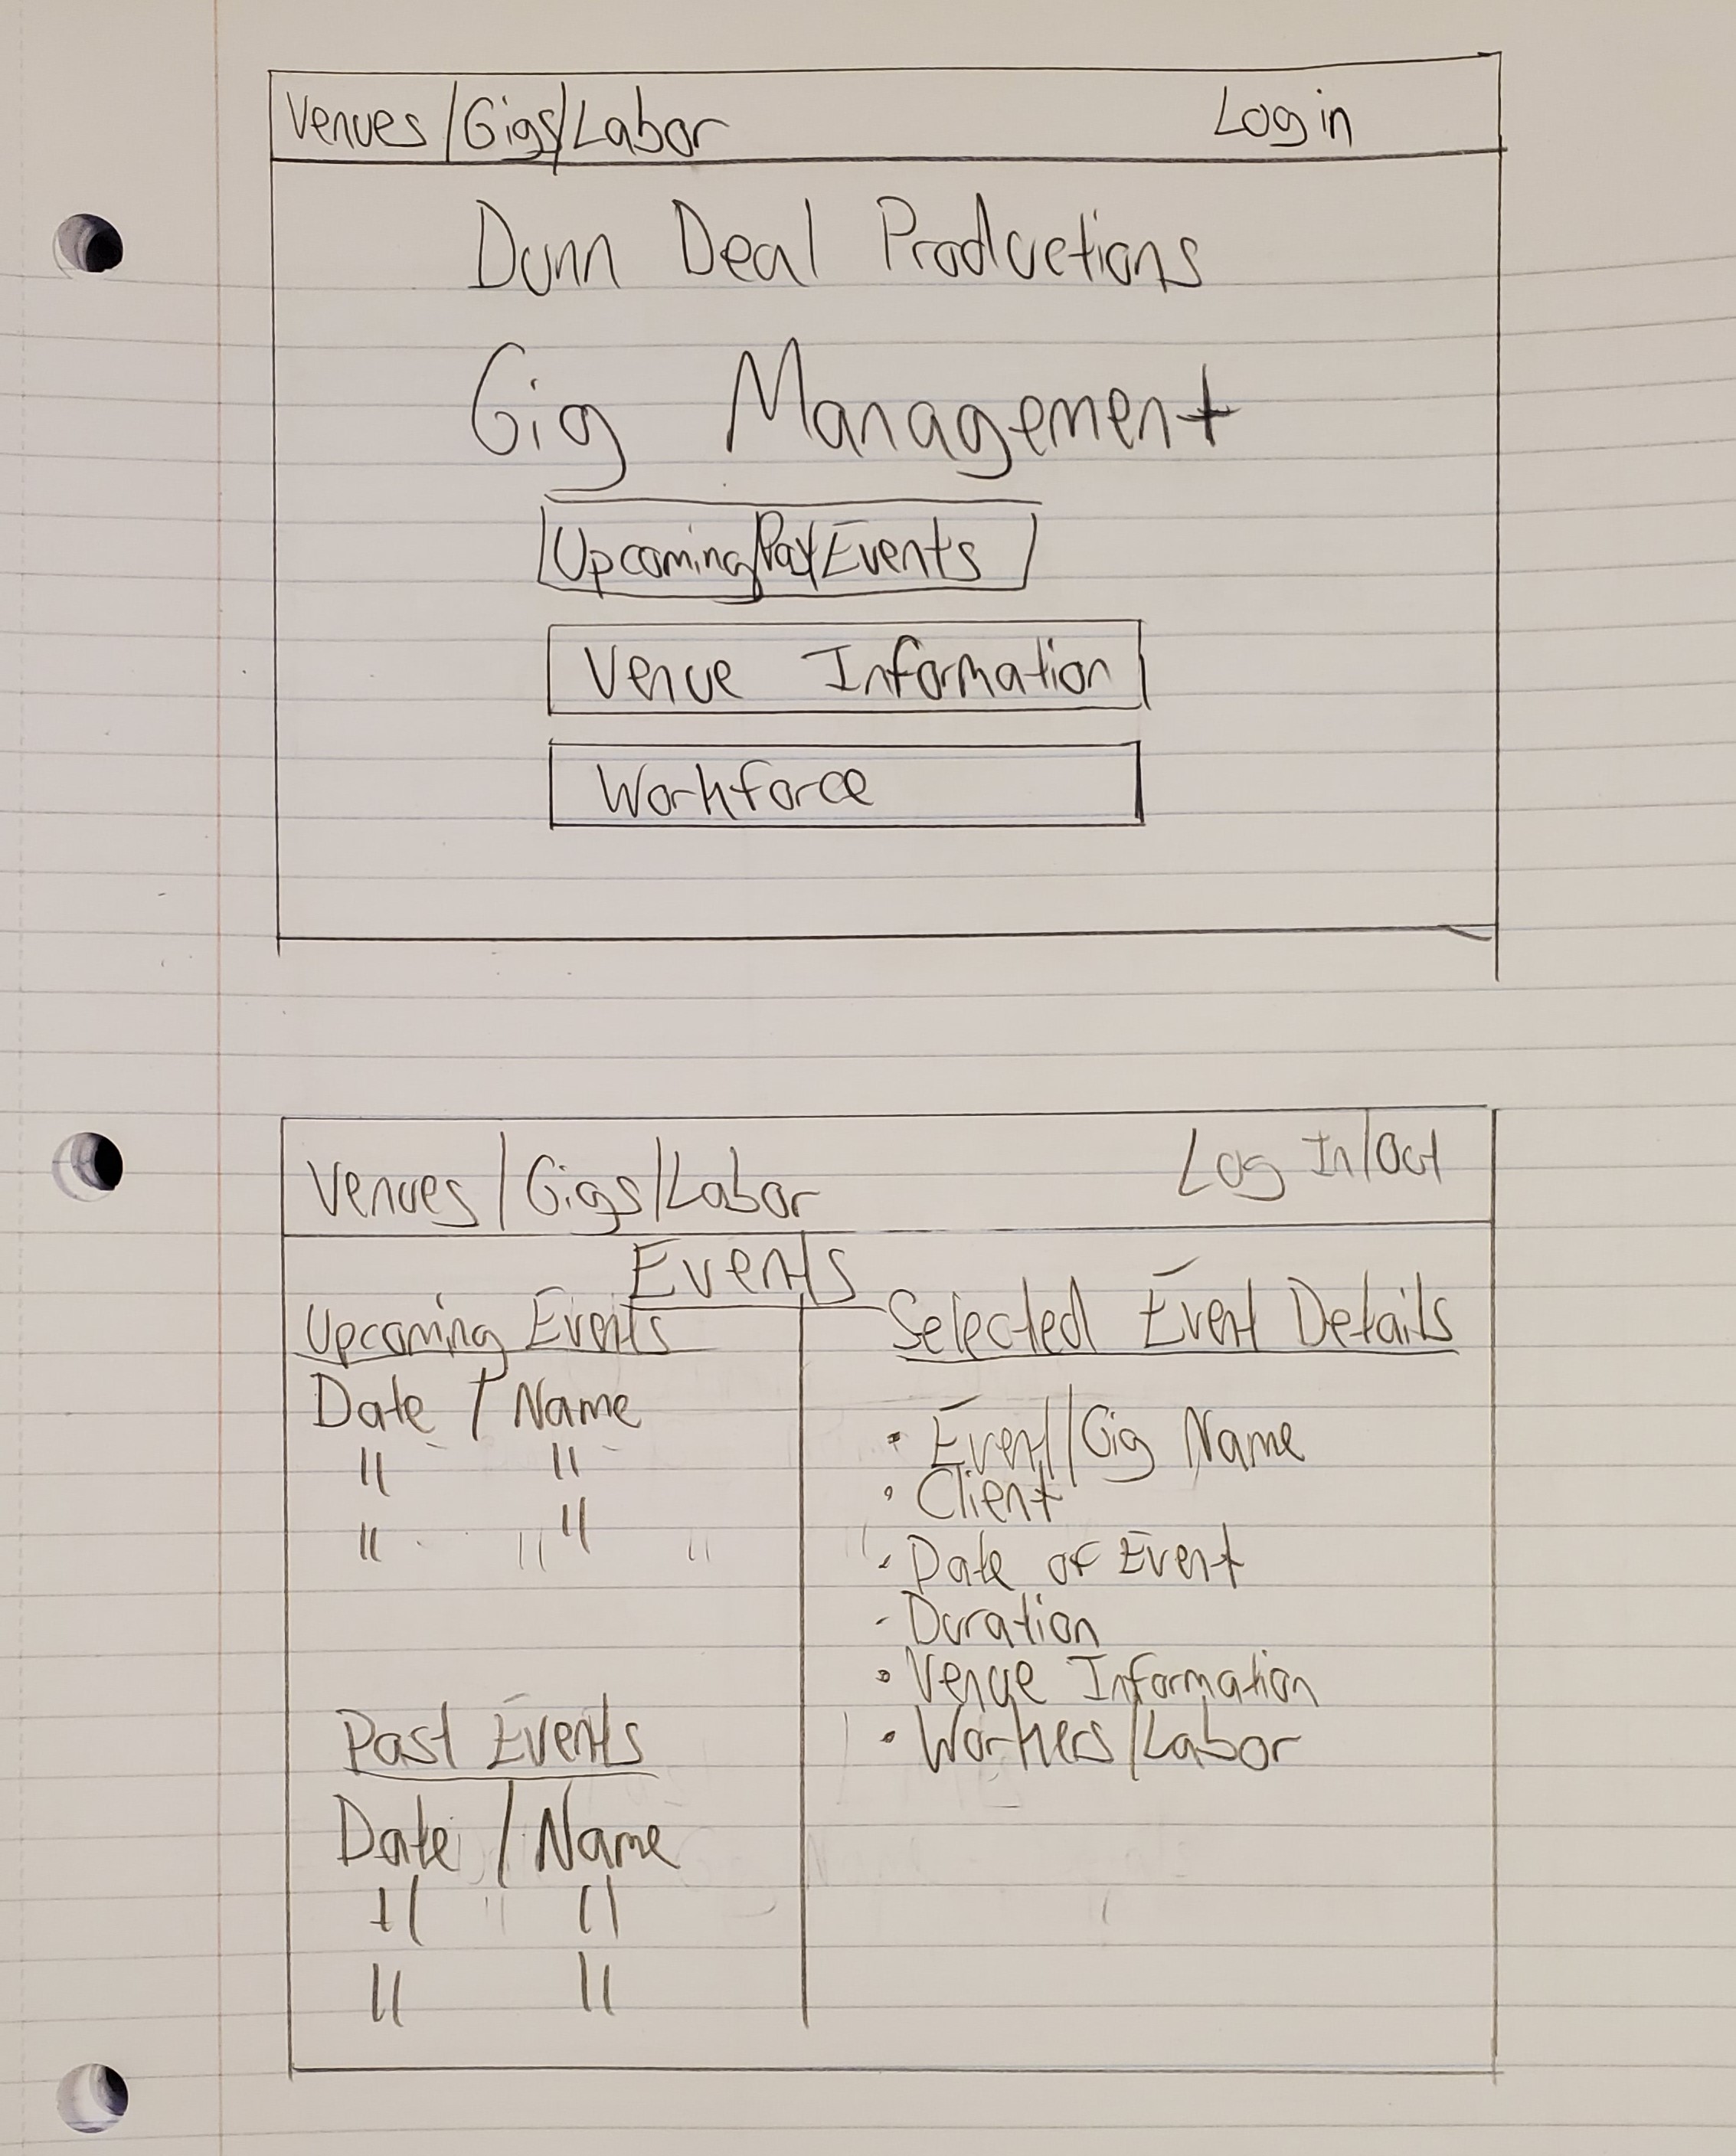 Venues / Gigs / Labor Log in
Dunn Deal Productions
Gig Management
Upcoming/Past Events
Venue Information
Workforce
Venues / Gigs / Labor Log In/Out
Events
Upcoming Events
Date / Name
" "
" "
Past Events
Date / Name
" "
" "
Selected Event Details
• Event/Gig Name
• Client
• Date of Event
- Duration
• Venue Information
• Workers/Labor